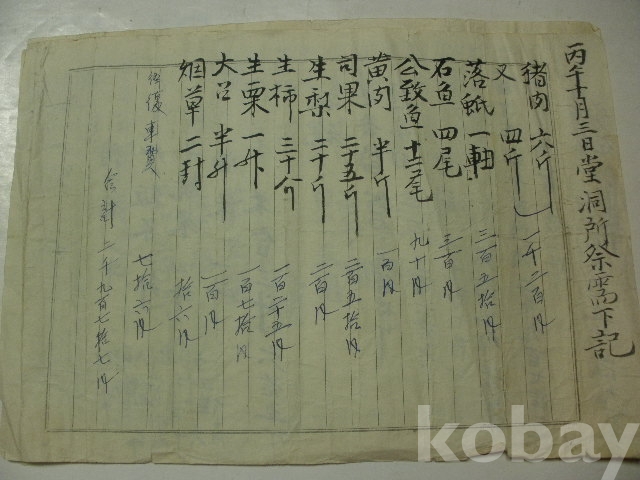 丙午十月三日堂洞所祭需下記
猪肉 六斤
又 四斤 一千二百円
落蚍 一軸 三百五拾円
石魚 四尾 三百円
公致魚 十二尾 九十円
黄肉 半斤 一百円
司果 二十五斤 二百五拾円
生梨 二十斤 二百円
生柿 三十介 一百二十五円
生栗 一升 一百七拾円
大召 半升 一百円
烟草 二封 拾六円
車費 七拾六円
合計 二千九百七拾七円
kobay